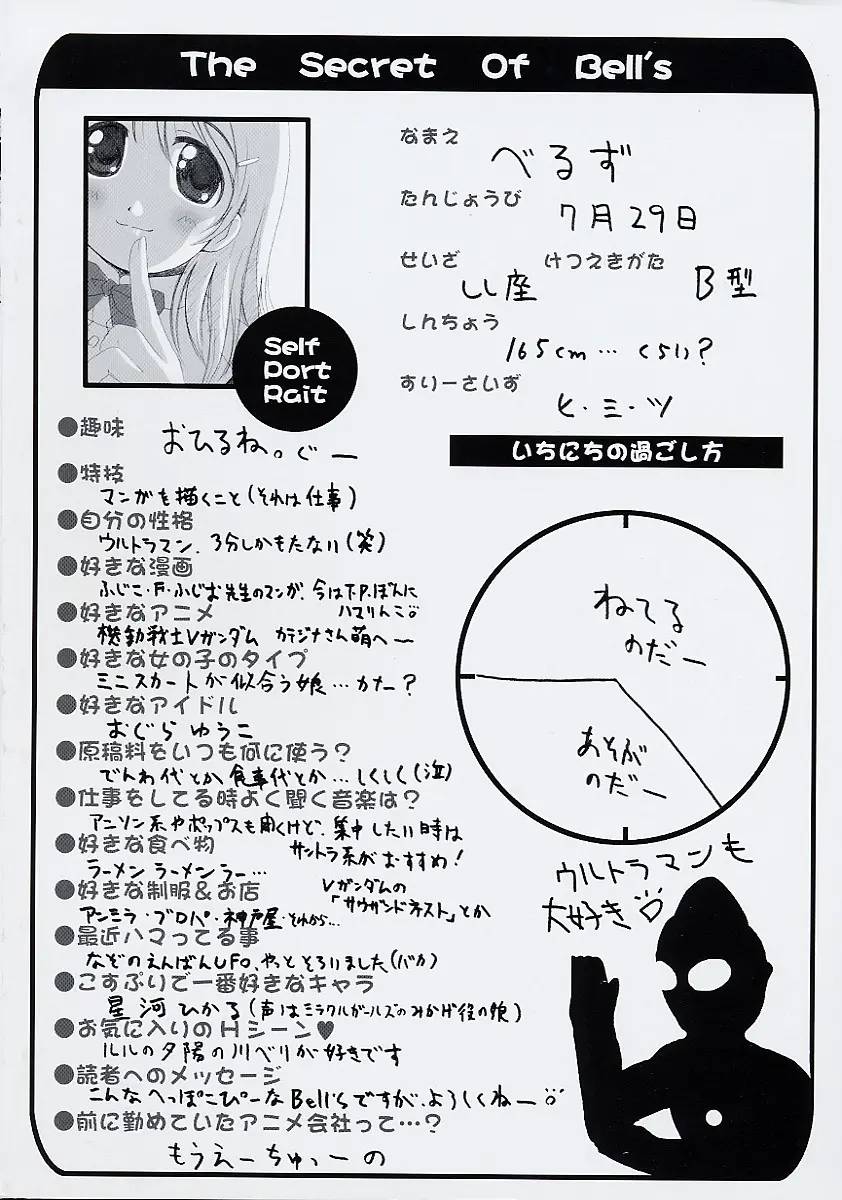 The Secret Of Bell's
Self
Port
Rait
なまえ
べるず
たんじょうび
7月29日
せいざ
しし座
けつえきがた
B型
しんちょう
165cm…くらい?
すりーさいず
ヒ・ミ・ツ
●趣味
おひるね。ぐー
●特技
マンガを描くこと(それは仕事)
●自分の性格
ウルトラマン、3分しかもたない(笑)
●好きな漫画
ふじこ・F・ふじお先生のマンガ、今はT.P.ぼんに
ハマりんこ
●好きなアニメ
機動戦士Vガンダム カテジナさん萌へー
●好きな女の子のタイプ
ミニスカートが似合う娘…かな?
●好きなアイドル
おぐら ゆうこ
●原稿料をいつも何に使う?
でんわ代とか食事代とか…しくしく(泣)
●仕事をしてる時よく聞く音楽は?
アニソン系やポップスも聞くけど、集中したい時は
サントラ系がおすすめ!
Vガンダムの
「サウザンドネスト」とか
●好きな食べ物
ラーメン ラーメン ラー…
●好きな制服&お店
アンミラ・ブロパ・神戸屋・それから…
●最近ハマってる事
なぞのえんばんUFO、やっとそろいました(バカ)
●こすぷりで一番好きなキャラ
星河ひかる(声はミラクルガールズのみかげ役の娘)
●お気に入りのHシーン♥
ルルの夕陽の川べりが好きです
●読者へのメッセージ
こんなへっぽこぴーなBell'sですが、よろしくねー
●前に勤めていたアニメ会社って…?
もうえーちゅっーの
いちにちの過ごし方
ねてる
のだー
あそぶ
のだー
ウルトラマンも
大好き♡